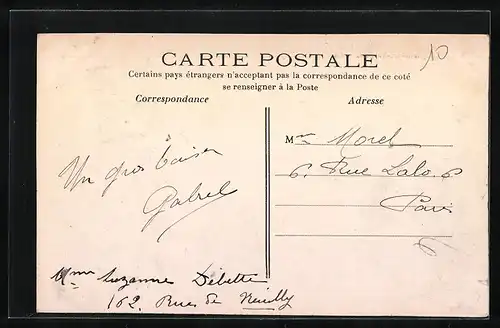 10
CARTE POSTALE
Certains pays étrangers n'acceptant pas la correspondance de ce coté
se renseigner à la Poste
Correspondance
Adresse
Un gros baiser
Gabriel
Mr Morel
6. Rue Lalo. 6
Paris
Mme Suzanne Debette
162. Rue de Neuilly